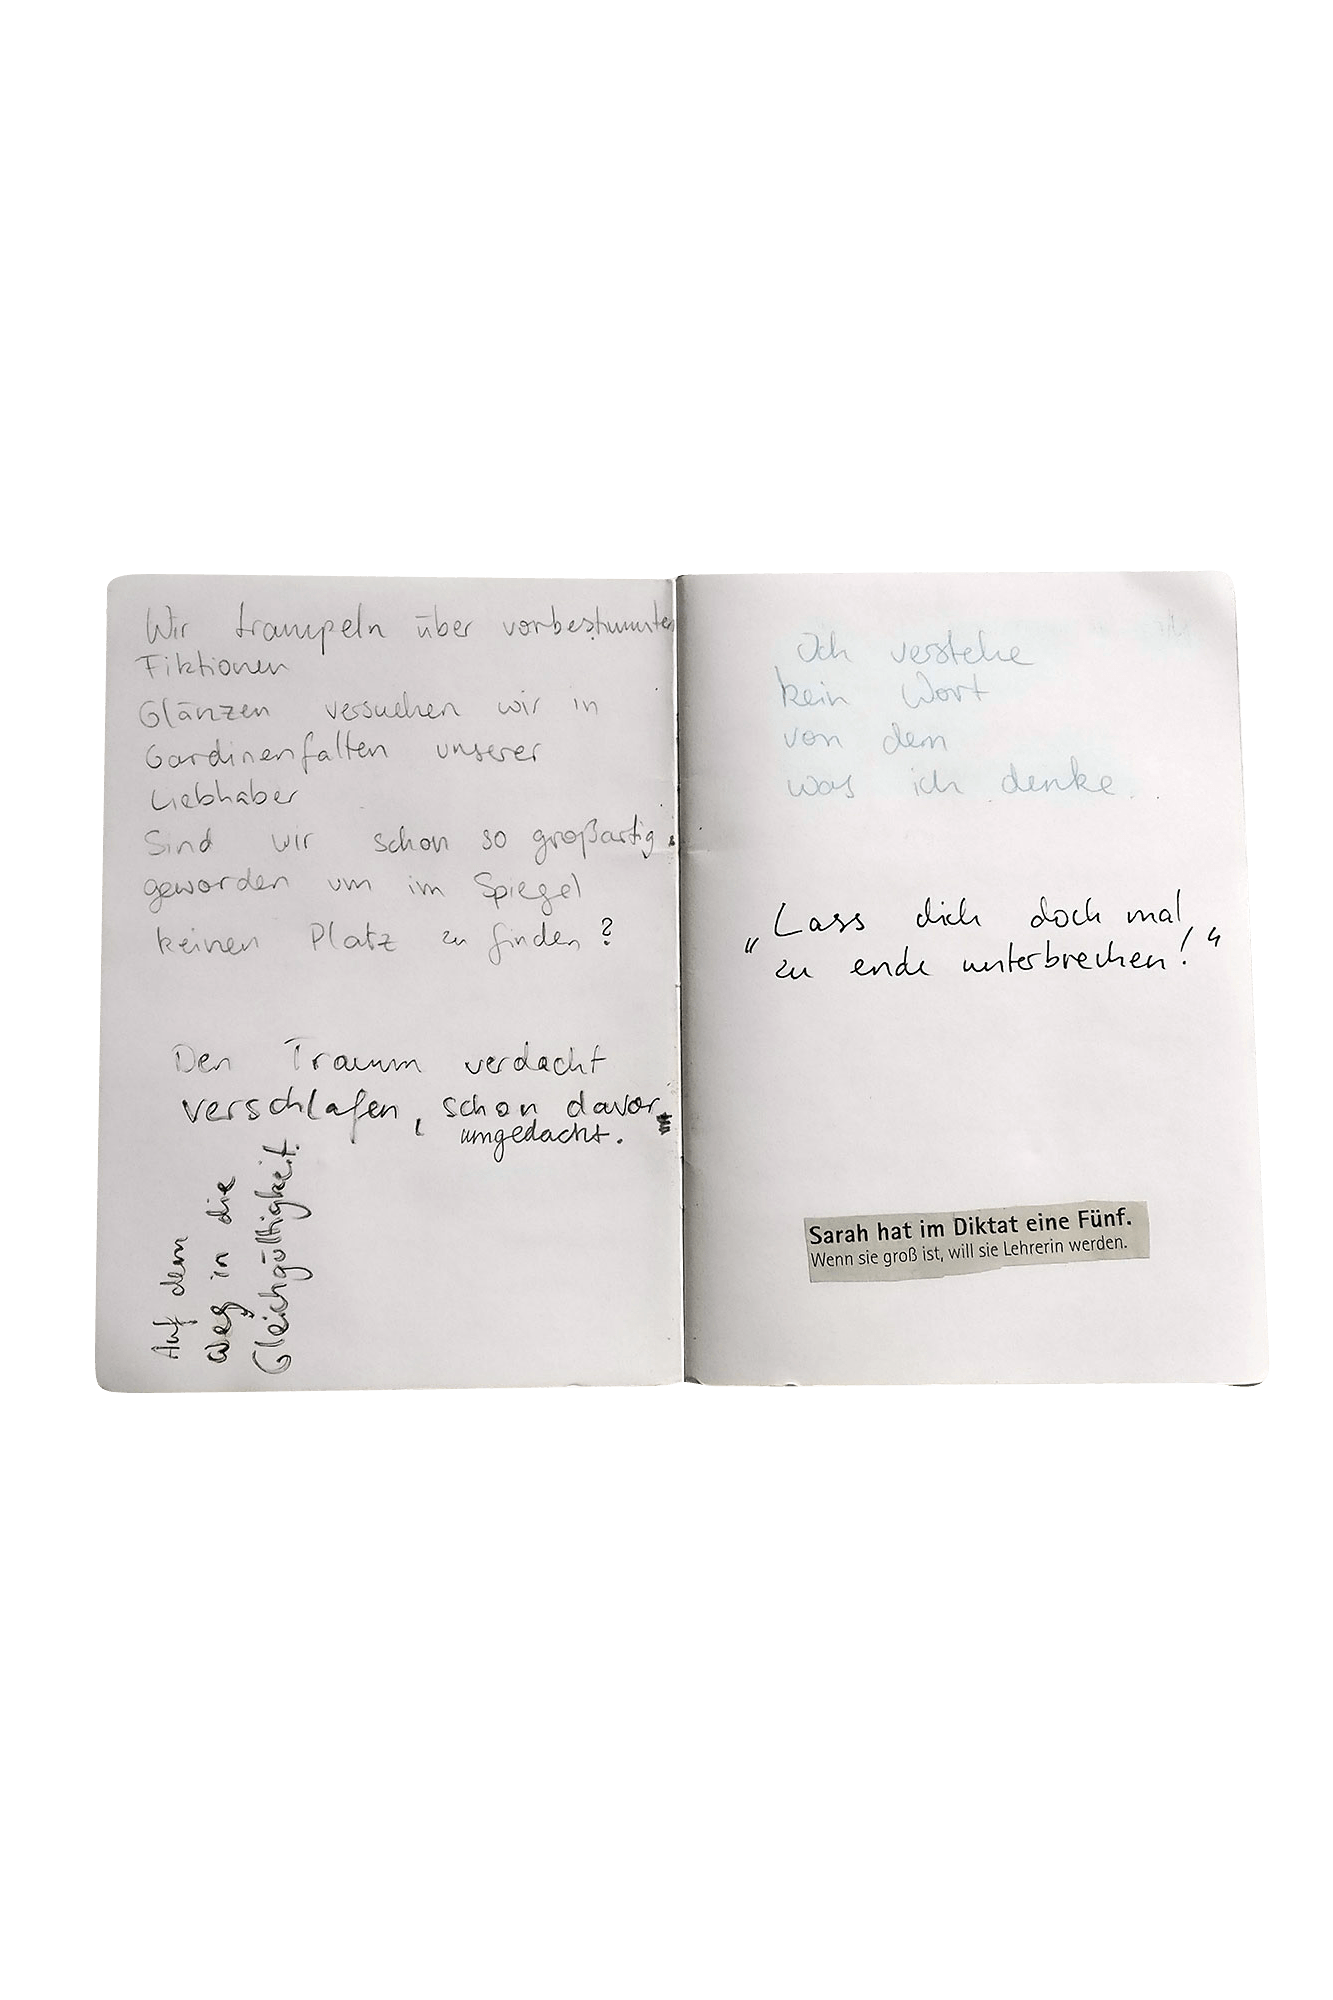 Wir trampeln über vorbestimmte
Fiktionen
Glänzen versuchen wir in
Gardinenfalten unserer
Liebhaber
Sind wir schon so großartig
geworden um im Spiegel
keinen Platz zu finden?
Den Traum verdacht
verschlafen, schon davor
umgedacht.
Auf dem
Weg in die
Gleichgültigkeit.
Ich verstehe
kein Wort
von dem
was ich denke.
„Lass dich doch mal
zu ende unterbrechen!“
Sarah hat im Diktat eine Fünf.
Wenn sie groß ist, will sie Lehrerin werden.